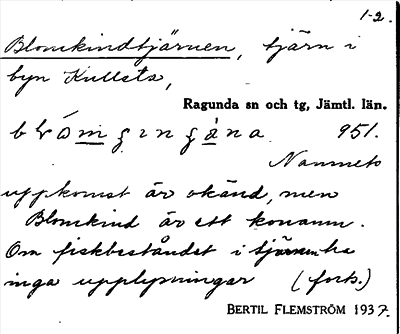 1-2.
Blomkindtjärnen, tjärn i
byn Kullsta,
Ragunda sn och tg, Jämtl. län.
951.
Namnets
uppkomst är okänd, men
Blomkind är ett konamn.
Om fiskbeståndet i tjärnen ha
inga upplysningar (forts.)
BERTIL FLEMSTRÖM 1937.